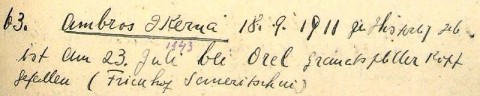 63. Ambros Skerna 18. 9. 1911 zu geb.
ist am 23. Juli 1943 bei Orel Granatsplitter Kopf
gefallen (Friedhof Semeritschni)